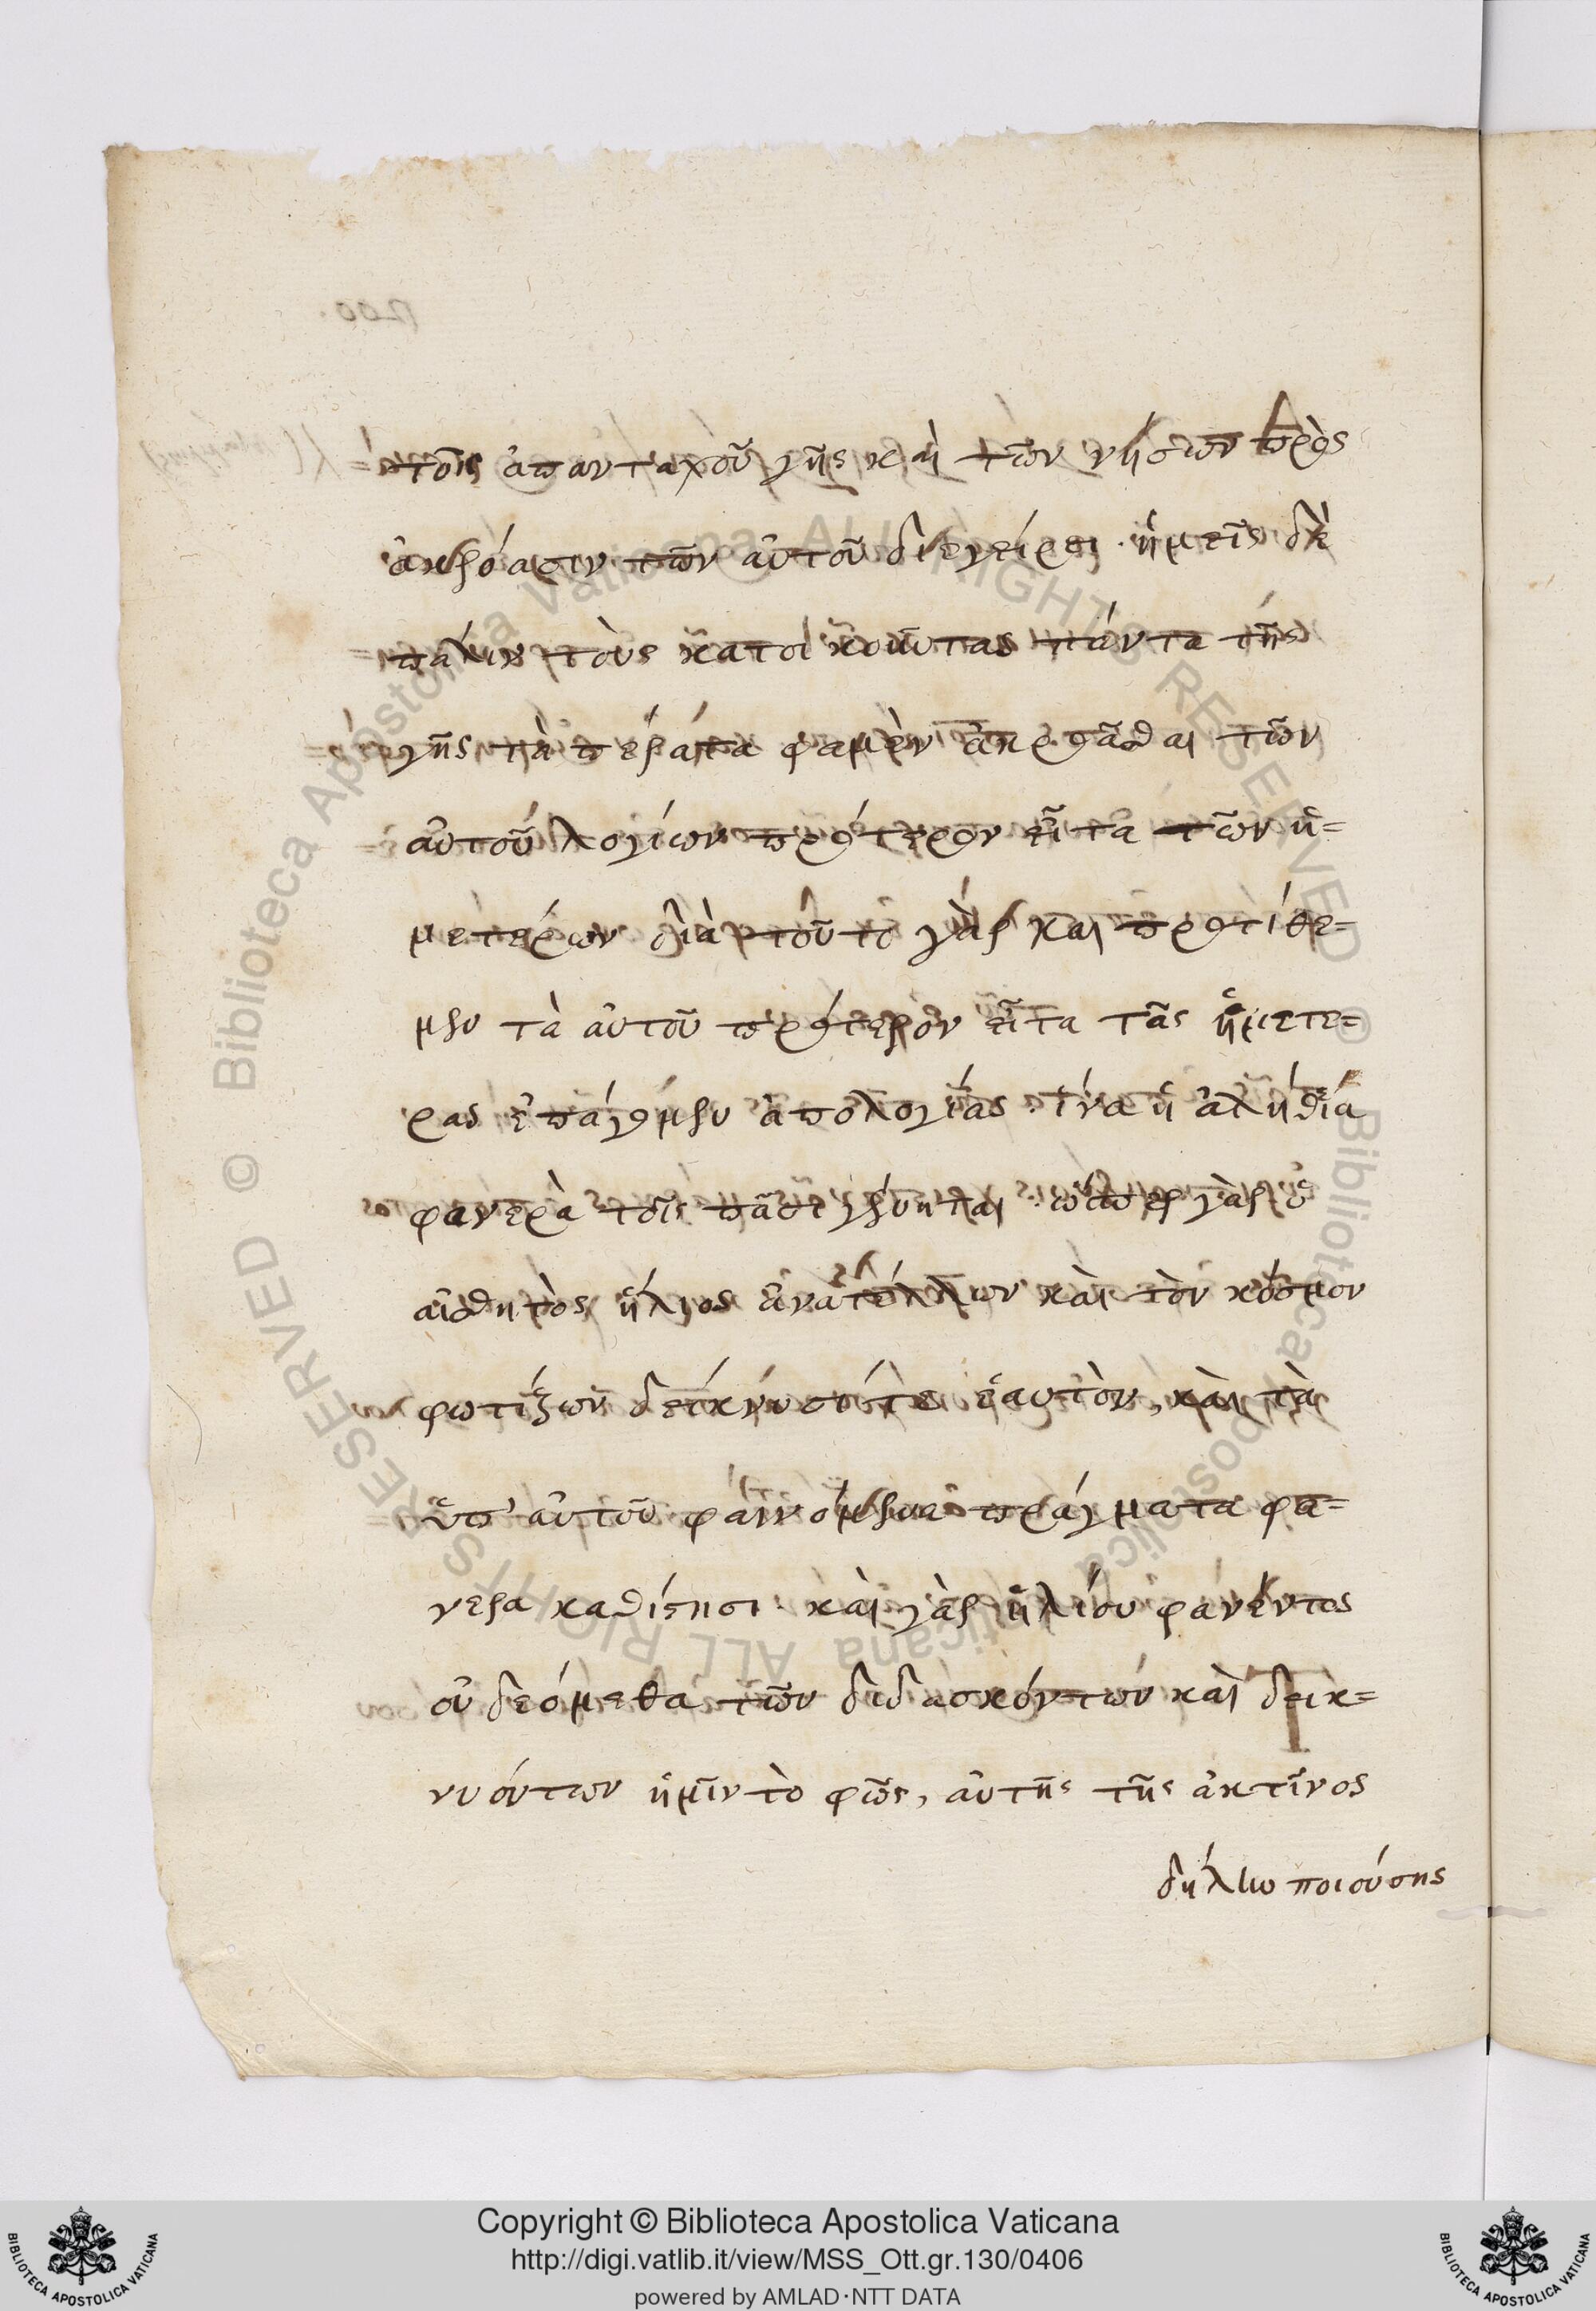 τοῖς ἁπανταχοῦ γῆς καὶ τῶν νήσων πρὸς
ἀκρόασιν τῶν αὐτοῦ διεγείρει. ἡμεῖς δὲ
πάλιν τοὺς κατοικοῦντας πάντα τῆς
γῆς τὰ πέρατα φαμὲν ἀκροᾶσθαι τῶν
αὐτοῦ λογίων πρότερον εἶτα τῶν ἡ=
μετέρων διὰ τοῦτο γὰρ καὶ προτίθε=
μεν τὰ αὐτοῦ πρότερον εἶτα τὰς ἡμετέ=
ρας ἐπάγομεν ἀπολογίας. ἵνα ἡ ἀλήθεια
φανερὰ τοῖς πᾶσι γένηται. ὥσπερ γὰρ ὁ
αἰσθητὸς ἥλιος ἀνατέλλων καὶ τὸν κόσμον
φωτίζων δείκνυσί τε ἑαυτὸν, καὶ τὰ
ὑπ' αὐτοῦ φαινόμενα πράγματα φα=
νερα καθίστησι. καὶ γὰρ ἡλίου φανέντος
οὐ δεόμεθα τῶν διδασκόντων καὶ δεικ=
νυόντων ἡμῖν τὸ φῶς, αὐτῆς τῆς ἀκτῖνος
δῆλον ποιούσης
Copyright © Biblioteca Apostolica Vaticana
http://digi.vatlib.it/view/MSS_Ott.gr.130/0406
powered by AMLAD·NTT DATA
BIBLIOTECA APOSTOLICA VATICANA
BIBLIOTECA APOSTOLICA VATICANA
© Biblioteca Apostolica Vaticana ALL RIGHTS RESERVED
© Biblioteca Apostolica Vaticana ALL RIGHTS RESERVED